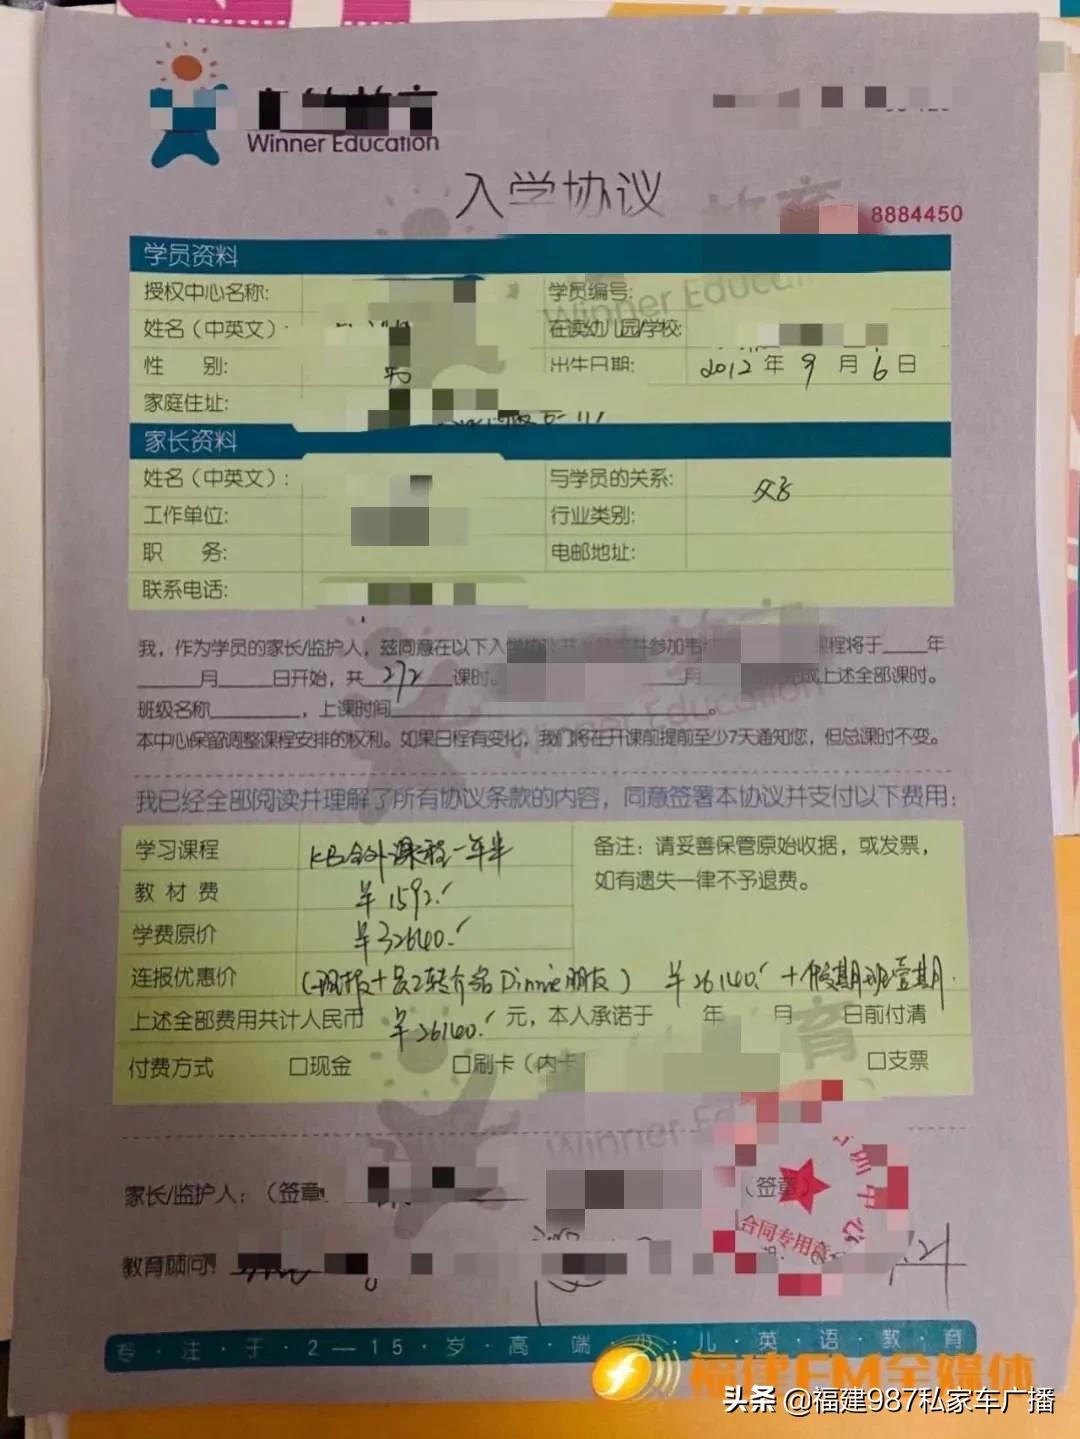 Winner Education
入学协议
8884450
学员资料
授权中心名称: 学员编号:
姓名（中英文）: 在读幼儿园/学校:
性 别: 男 出生日期: 2012 年 9 月 6 日
家庭住址:
家长资料
姓名（中英文）: 与学员的关系: 父子
工作单位: 行业类别:
职 务: 电邮地址:
联系电话:
我，作为学员的家长/监护人，兹同意在以下入学协议 并参加韦 课程将于____年
____月____日开始，共 272 课时。 ____月 完成上述全部课时。
班级名称________，上课时间________________。
本中心保留调整课程安排的权利。如果日程有变化，我们将在开课前提前至少7天通知您，但总课时不变。
我已经全部阅读并理解了所有协议条款的内容，同意签署本协议并支付以下费用：
学习课程 KB 课程一年半
备注：请妥善保管原始收据，或发票，
如有遗失一律不予退费。
教 材 费 ¥1592.
学费原价 ¥32640.
连报优惠价 (现报+ 转介绍Dinnie朋友) ¥26140. +假期班壹期.
上述全部费用共计人民币 ¥26140. 元，本人承诺于 年 月 日前付清
付费方式 □现金 □刷卡（内卡 □支票
家长/监护人：（签章 （签章）
合同专用章
教育顾问:
专·注·于·2—15·岁·高·端·少·儿·英·语·教·育
福建FM全媒体
头条 @福建987私家车广播